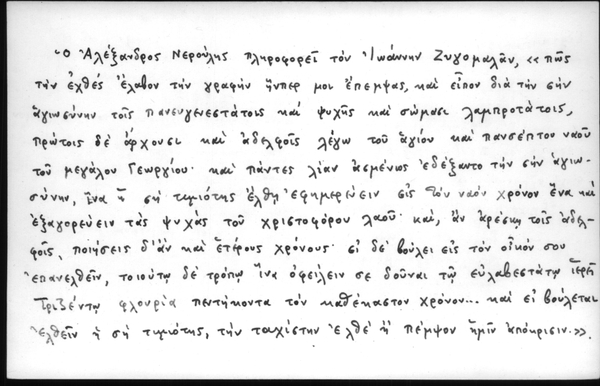 Ὁ Ἀλέξανδρος Νερούλης πληροφορεῖ τὸν Ἰωάννην Ζυγομαλᾶν, «πῶς
τὴν ἐχθὲς ἔλαβον τὴν γραφὴν ἥνπερ μοι ἔπεμψας, καὶ εἶπον διὰ τὴν σὴν
ἁγιωσύνην τοῖς πανευγενεστάτοις καὶ ψυχῆς καὶ σώμασι λαμπροτάτοις,
πρώτοις δὲ ἄρχουσι καὶ ἀδελφοῖς λέγω τοῦ ἁγίου καὶ πανσέπτου ναοῦ
τοῦ μεγάλου Γεωργίου· καὶ πάντες λίαν ἀσμένως ἐδέξαντο τὴν σὴν ἁγιω-
σύνην, ἵνα ἡ σὴ τιμιότης ἔλθῃ ἐφημερεύειν εἰς τὸν ναὸν χρόνον ἕνα καὶ
ἐξαγορεύειν τὰς ψυχὰς τοῦ χριστοφόρου λαοῦ· καὶ, ἂν ἀρέσκῃ τοῖς ἀδελ-
φοῖς, ποιήσεις δ' ἂν καὶ ἑτέρους χρόνους· εἰ δὲ βούλει εἰς τὸν οἶκόν σου
ἐπανελθεῖν, τοιούτῳ δὲ τρόπῳ ἵνα ὀφείλειν σε δοῦναι τῷ εὐλαβεστάτῳ ἱερεῖ
Τριζέντῳ φλουρία πεντήκοντα τὸν καθέκαστον χρόνον... καὶ εἰ βούλεται
ἐλθεῖν ἡ σὴ τιμιότης, τὴν ταχίστην ἐλθὲ ἢ πέμψον ἡμῖν ἀπόκρισιν.».